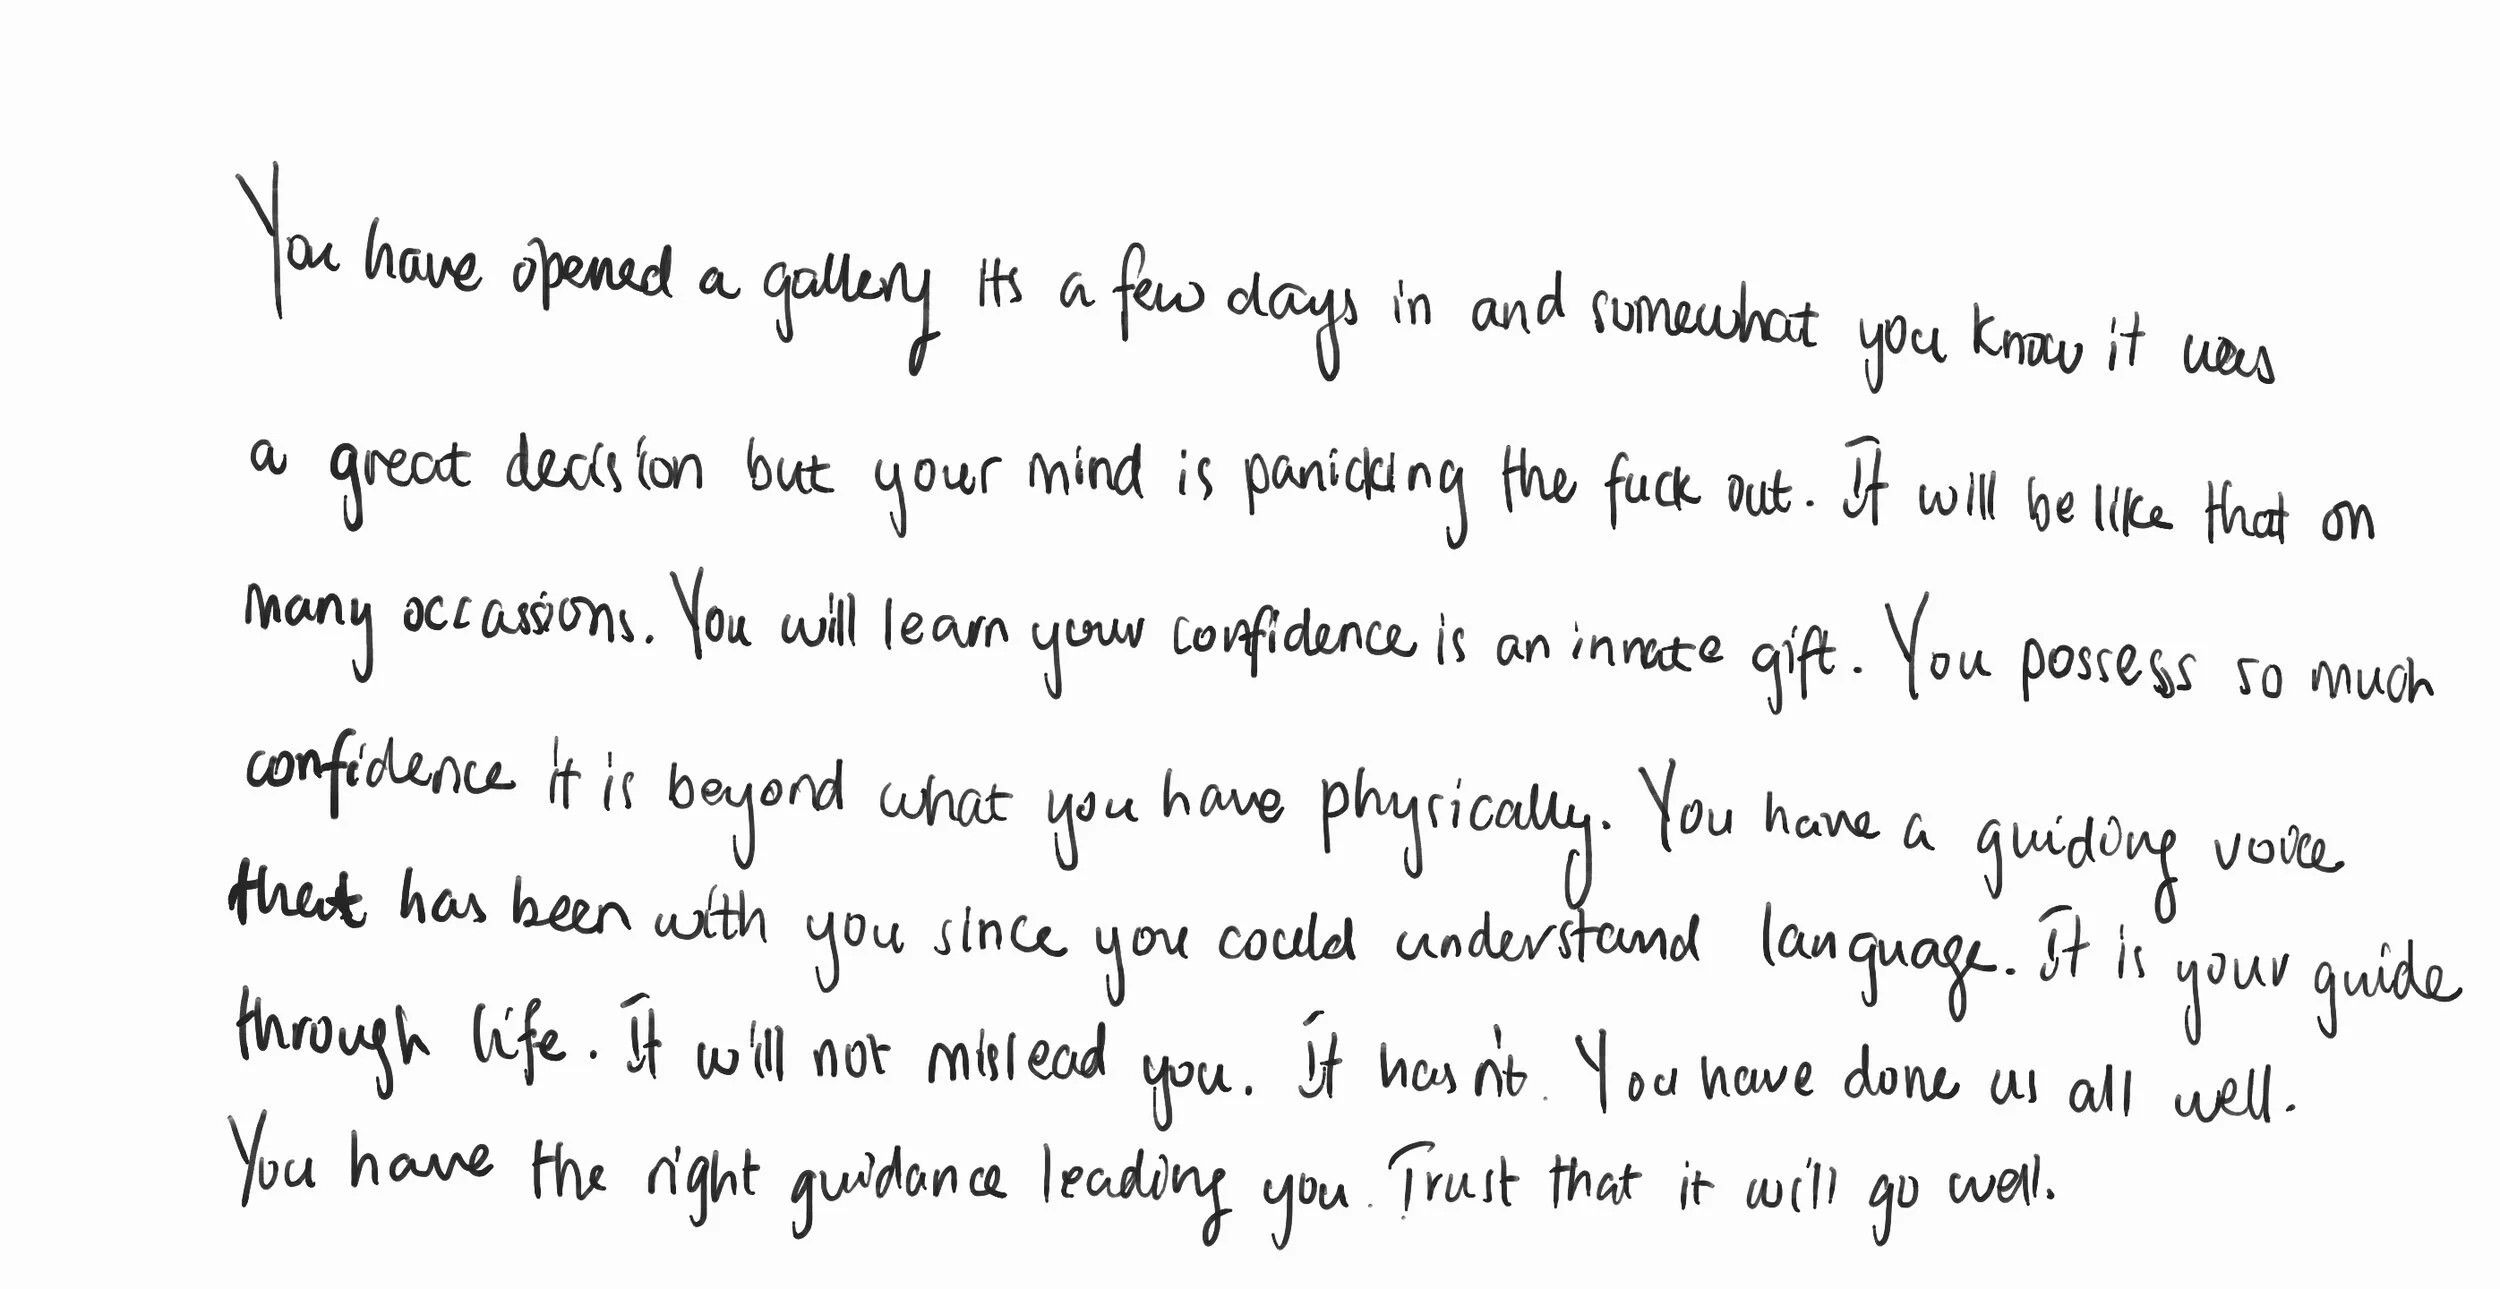 You have opened a gallery its a few days in and somewhat you know it was
a great decision but your mind is panicking the fuck out. It will be like that on
many occassions. You will learn your confidence is an innate gift. You possess so much
confidence it is beyond what you have physically. You have a guiding voice
that has been with you since you could understand language. It is your guide
through life. It will not mislead you. It hasn't. You have done us all well.
You have the right guidance leading you. Trust that it will go well.